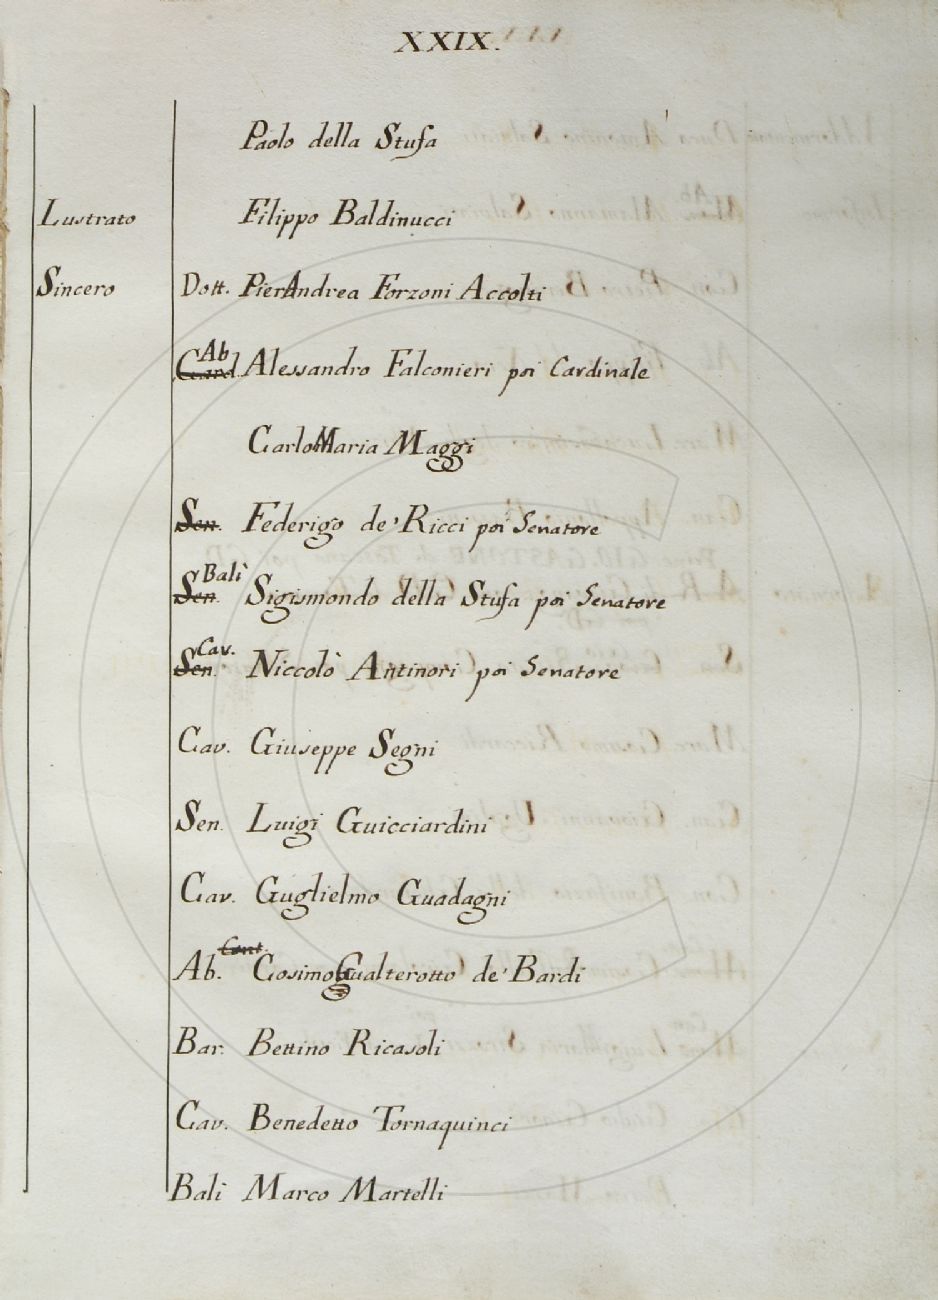 XXIX.
Paolo della Stufa
Lustrato Filippo Baldinucci
Sincero Dott. PierAndrea Forzoni Accolti
Ab
Card. Alessandro Falconieri poi Cardinale
CarloMaria Maggi
Sen. Federigo de' Ricci poi Senatore
Balì
Sen. Sigismondo della Stufa poi Senatore
Cav.
Sen. Niccolò Antinori poi Senatore
Cav. Giuseppe Segni
Sen. Luigi Guicciardini
Cav. Guglielmo Guadagni
Cont.
Ab. CosimoGualterotto de' Bardi
Bar. Bettino Ricasoli
Cav. Benedetto Tornaquinci
Balì Marco Martelli